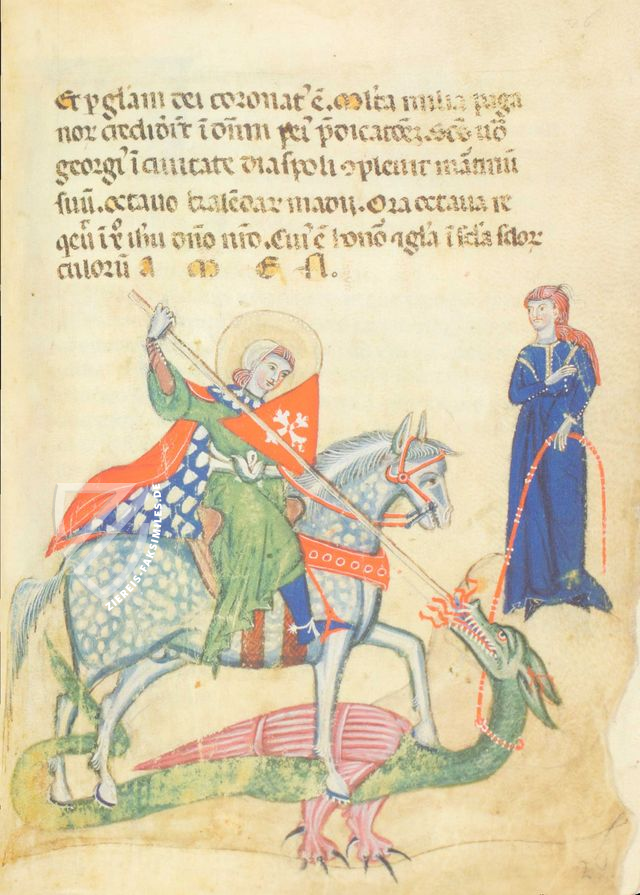 Et p gl'am dei coronat' ē. Mlta milia paga
nor crediderūt ī dnm per p̄dicatōēz. Scs uō
georgi' ī ciuitate diaspoli ɔpleuit martiriū
suū. octauo kalendar madii. Ora octaua re
ī xp̄o ihu dno nro. Cui' ē honor gl'a ī sc'la sc'lor
culorū A M E N.
ZIEREIS-FAKSIMILES.DE